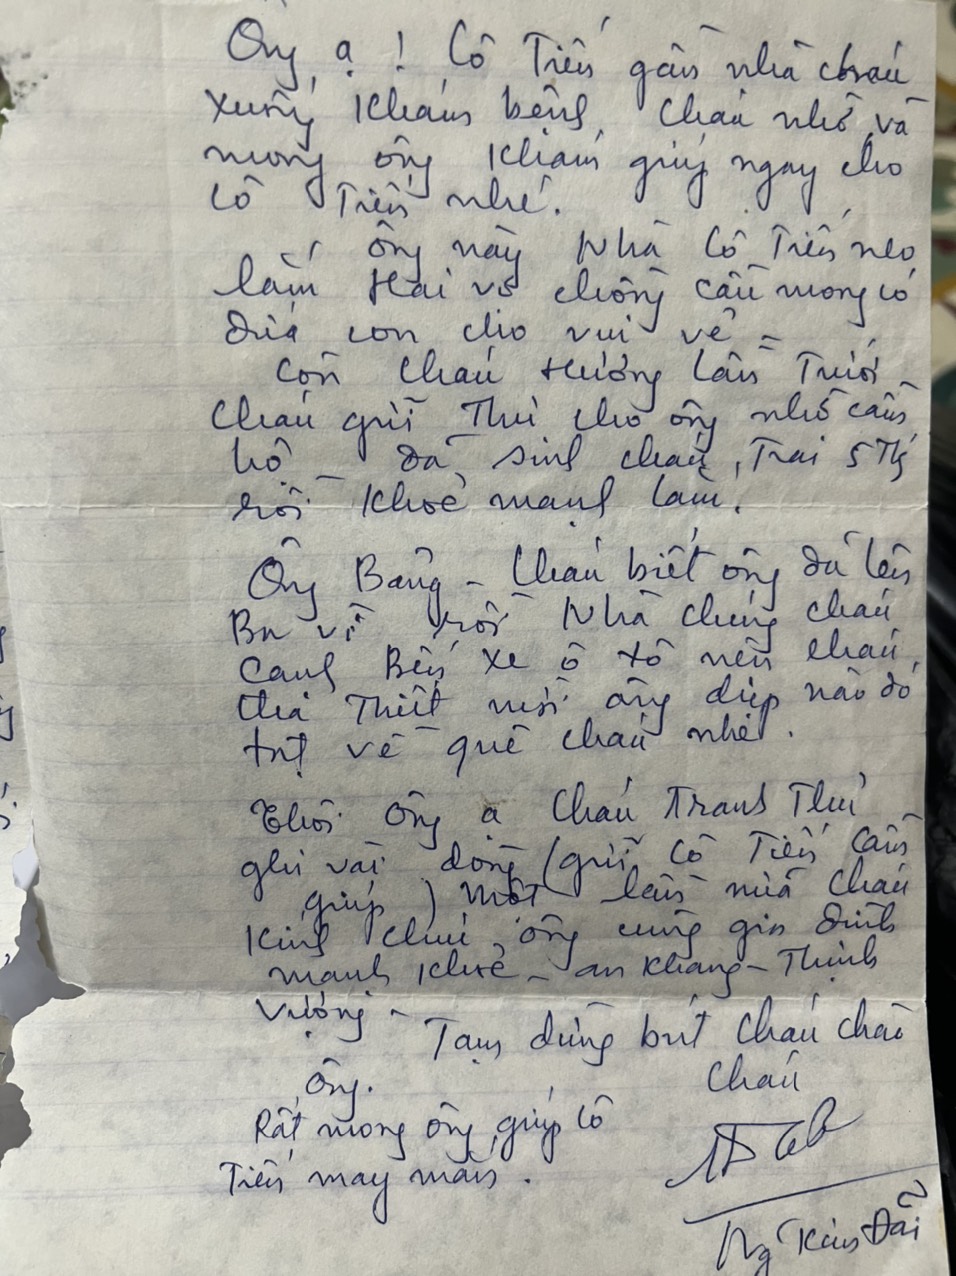 Ông ạ! Cô Tiến gần nhà cháu
xuống khám bệnh, cháu nhờ và
mong ông khám giúp ngay cho
cô Tiến nhé.
Ông này Nhà cô Tiến neo
lắm Hai vợ chồng cầu mong có
đứa con cho vui vẻ =
Còn cháu Hường lần Trước
cháu gửi Thư cho ông nhờ cầm
hộ – đã sinh cháu Trai 5 Tg
rồi khoẻ mạnh lắm.
Ông Bằng – Cháu biết ông đã lên
rồi Nhà chúng cháu
cạnh Bến xe ô tô nên cháu
Thiết mời ông dịp nào đó
về quê cháu nhé.
Thôi ông ạ cháu Tranh Thủ
ghi vài dòng (gửi cô Tiến cầm
giúp) Một lần nữa cháu
kính chúc ông cùng gia đình
mạnh khoẻ – an khang – Thịnh
vượng – Tạm dừng bút cháu chào
ông. Cháu
Rất mong ông giúp cô
Tiến may mắn.
Ng Kim Đãi